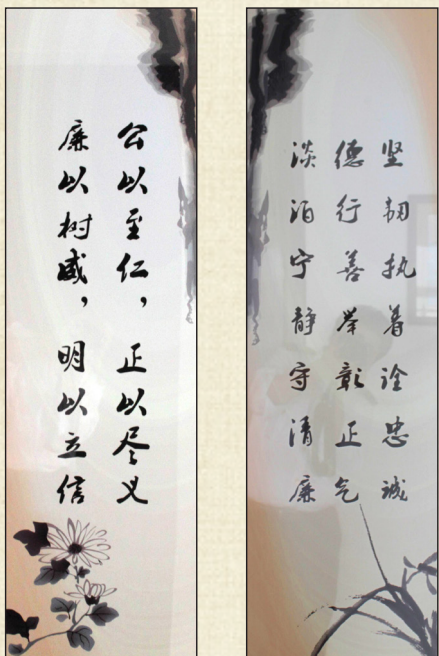 公以至仁，正以尽义
廉以树威，明以立信
坚韧执着诠忠诚
德行善举彰正气
淡泊宁静守清廉